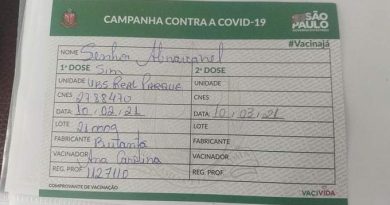 CAMPANHA CONTRA A COVID-19
SÃO PAULO
#Vacinajá
NOME Senhor
1ª DOSE Sim 2ª DOSE
UNIDADE UBS Real Parque UNIDADE
CNES 2788470 CNES
DATA: 10/02/21 DATA: 10/03/21
LOTE 21 LOTE
FABRICANTE Butantã FABRICANTE
VACINADOR Ana Carolina VACINADOR
REG. PROF 1127110 REG. PROF.
COMPROVANTE DE VACINAÇÃO
VACIVIDA